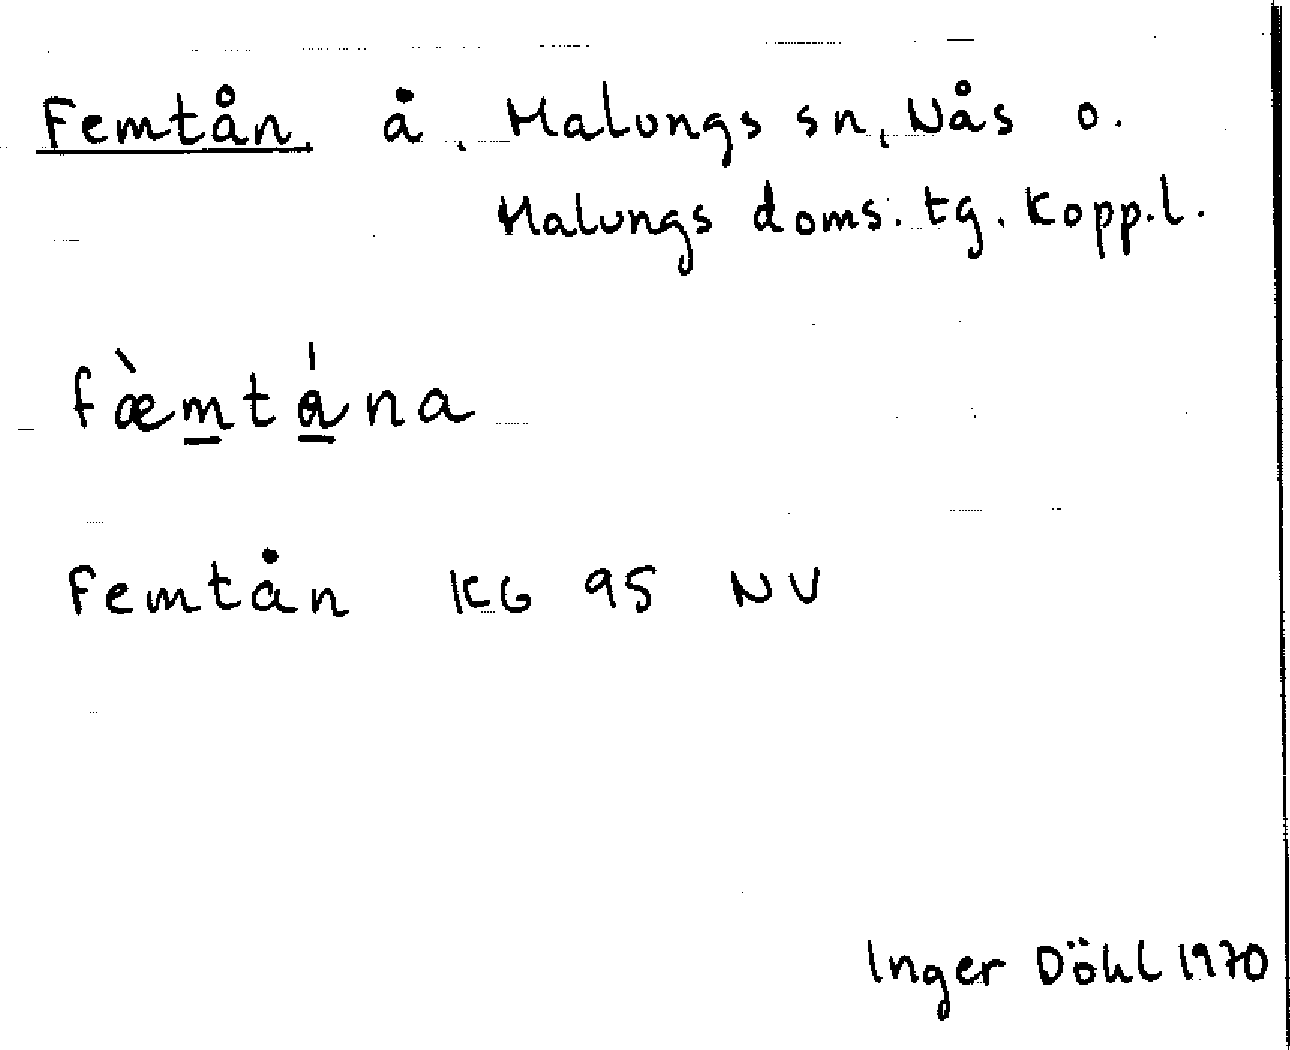 Femtån, å, Malungs sn, Nås o.
Malungs doms. tg. Kopp.l.
fæ̀m̲tá̲na
Femtån KG 95 NV
Inger Döhl 1970